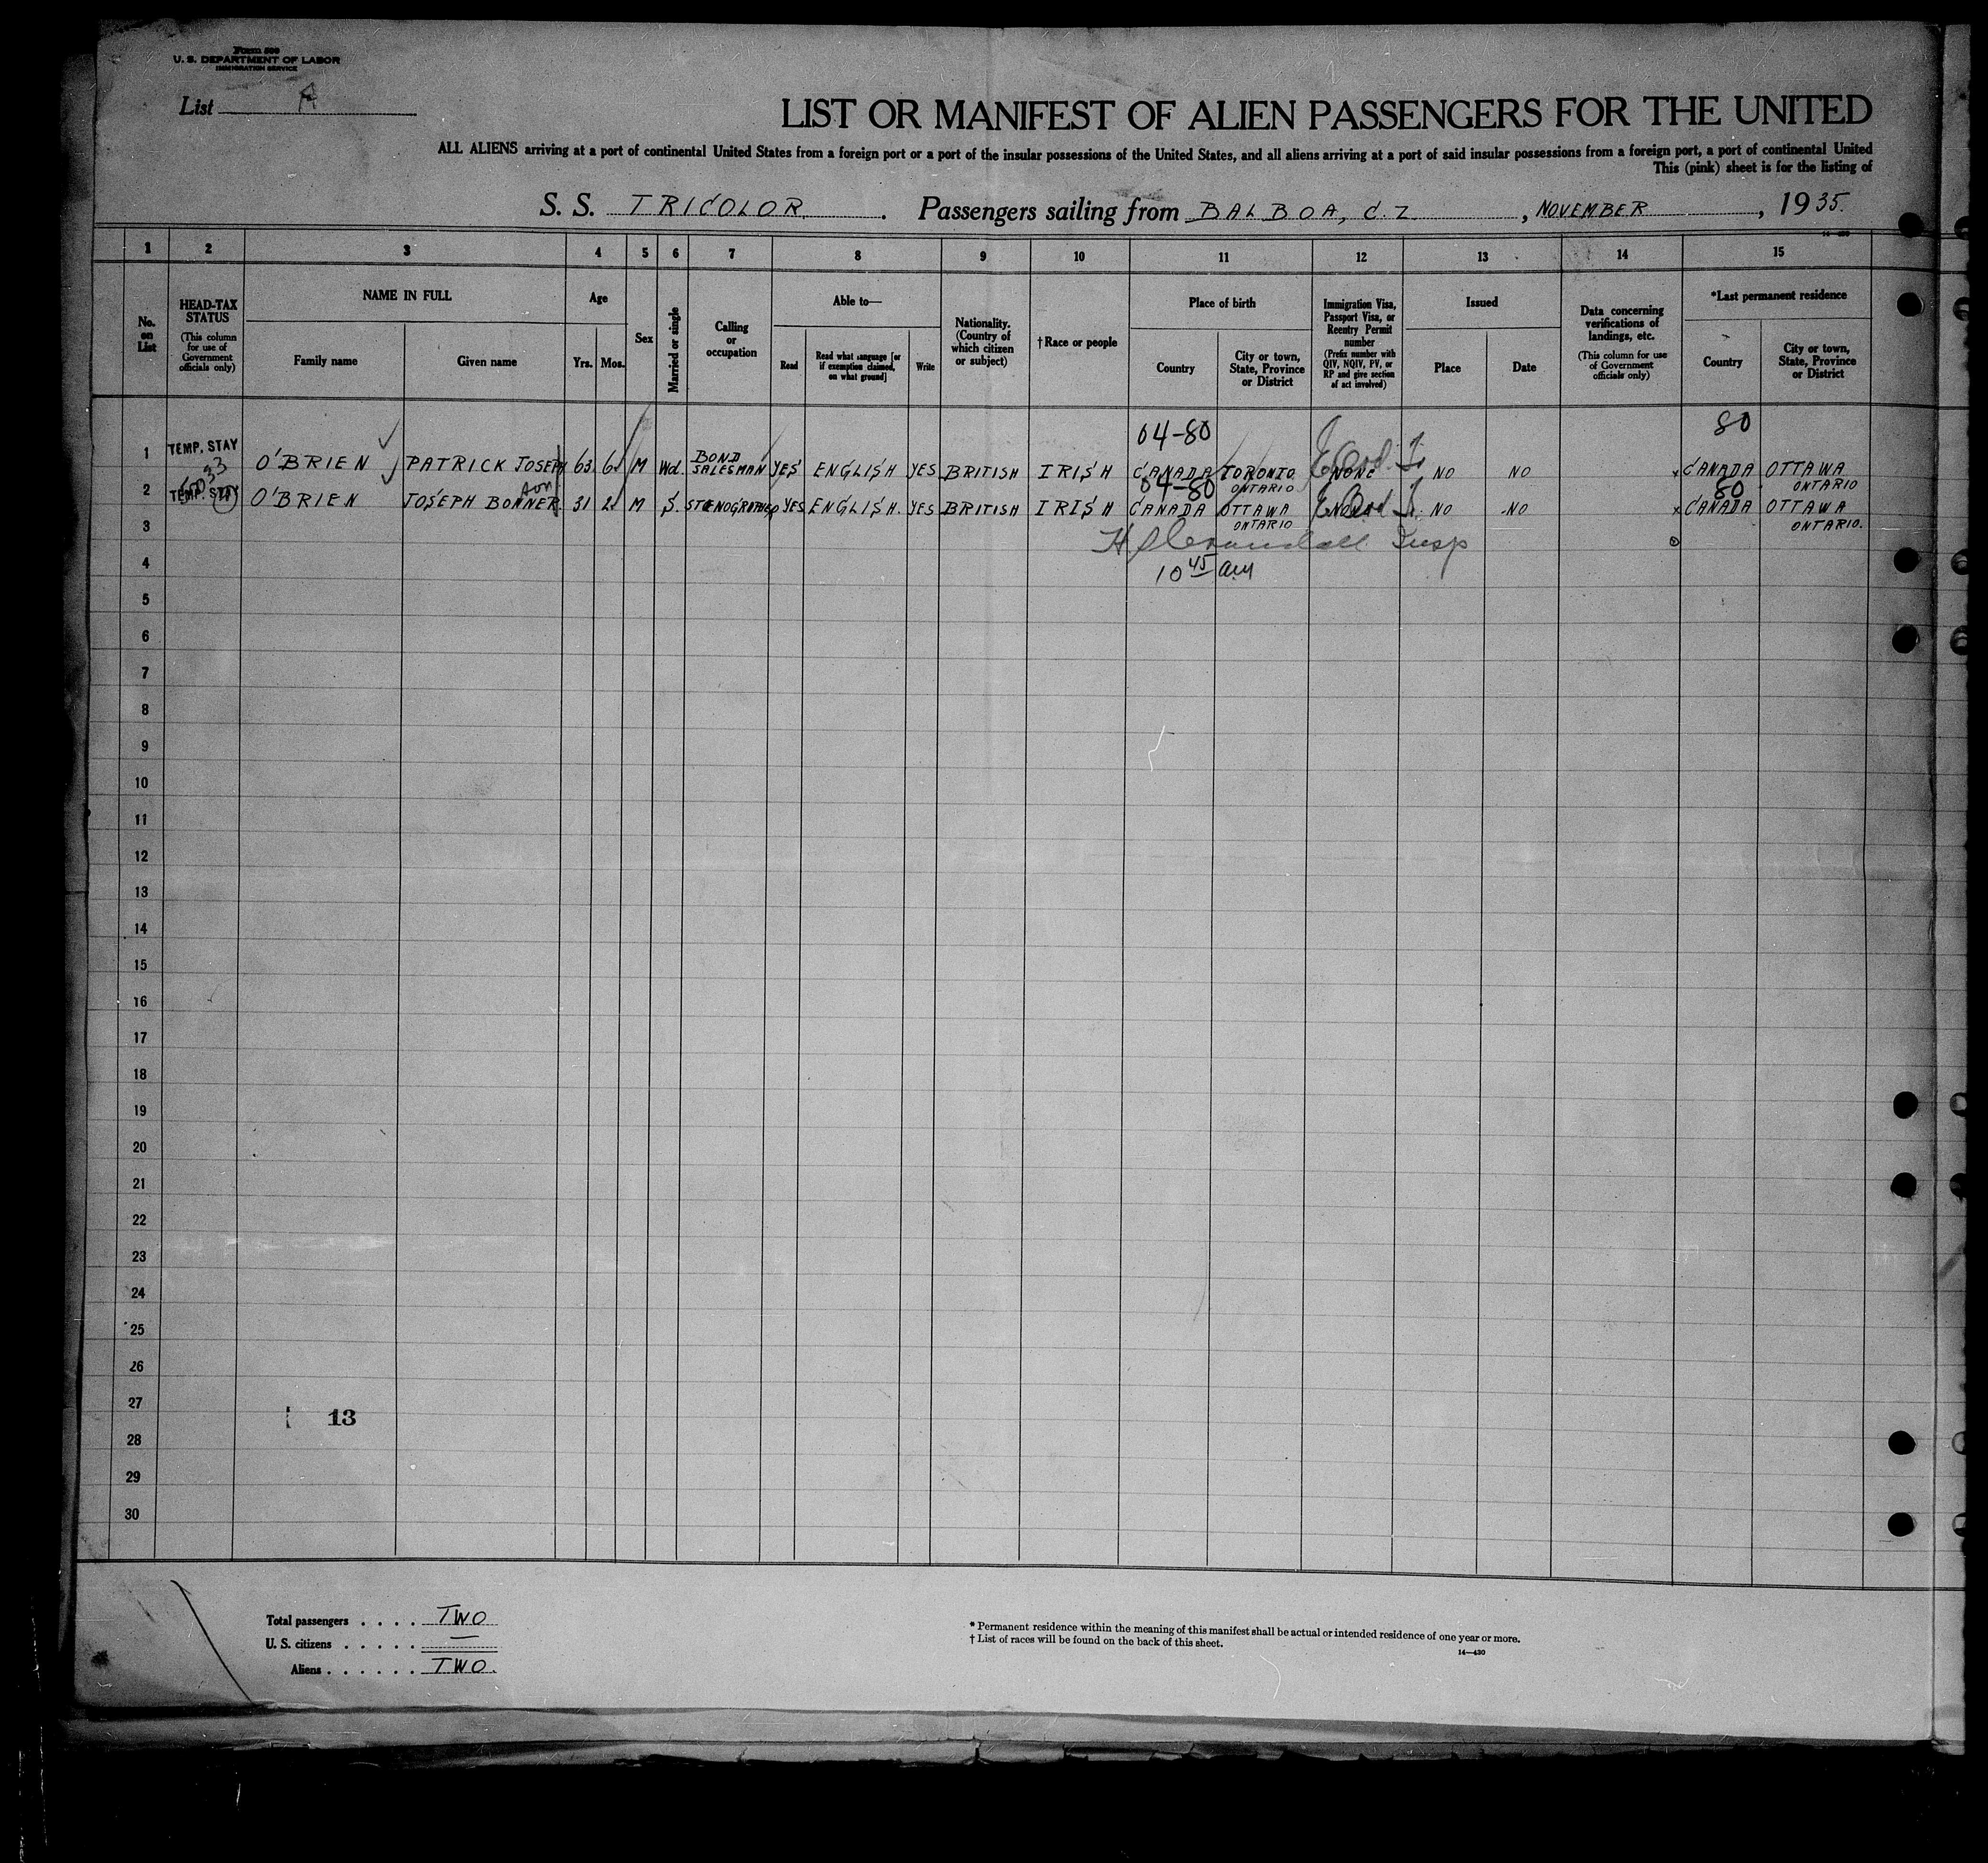 Form 500
U. S. DEPARTMENT OF LABOR
IMMIGRATION SERVICE
List A
LIST OR MANIFEST OF ALIEN PASSENGERS FOR THE UNITED
ALL ALIENS arriving at a port of continental United States from a foreign port or a port of the insular possessions of the United States, and all aliens arriving at a port of said insular possessions from a foreign port, a port of continental United
This (pink) sheet is for the listing of
S. S. TRICOLOR. Passengers sailing from BALBOA, C.Z, NOVEMBER, 1935.
1 2 3 4 5 6 7 8 9 10 11 12 13 14 15
No. on List
HEAD-TAX STATUS
(This column for use of Government officials only)
NAME IN FULL
Family name
Given name
Age
Yrs.
Mos.
Sex
Married or single
Calling or occupation
Able to—
Read
Read what language [or if exemption claimed, on what ground]
Write
Nationality. (Country of which citizen or subject)
†Race or people
Place of birth
Country
City or town, State, Province or District
Immigration Visa, Passport Visa, or Reentry Permit number
(Prefix number with QIV, NQIV, PV, or RP and give section of act involved)
Issued
Place
Date
Data concerning verifications of landings, etc.
(This column for use of Government officials only)
*Last permanent residence
Country
City or town, State, Province or District
04-80 80
1 TEMP. STAY O'BRIEN PATRICK JOSEPH 63 6 M Wd. BOND SALESMAN YES ENGLISH YES BRITISH IRISH CANADA TORONTO ONTARIO NONE NO NO CANADA OTTAWA ONTARIO
04-80 80
2 TEMP. STAY O'BRIEN JOSEPH BONNER son 31 2 M S. STENOGRAPHER YES ENGLISH. YES BRITISH IRISH CANADA OTTAWA ONTARIO NO NO CANADA OTTAWA ONTARIO.
3 Insp
4 10 45 am
5
6
7
8
9
10
11
12
13
14
15
16
17
18
19
20
21
22
23
24
25
26
27
13
28
29
30
Total passengers . . . . TWO
U. S. citizens . . . . . —
Aliens . . . . . . TWO.
* Permanent residence within the meaning of this manifest shall be actual or intended residence of one year or more.
† List of races will be found on the back of this sheet.
14—430